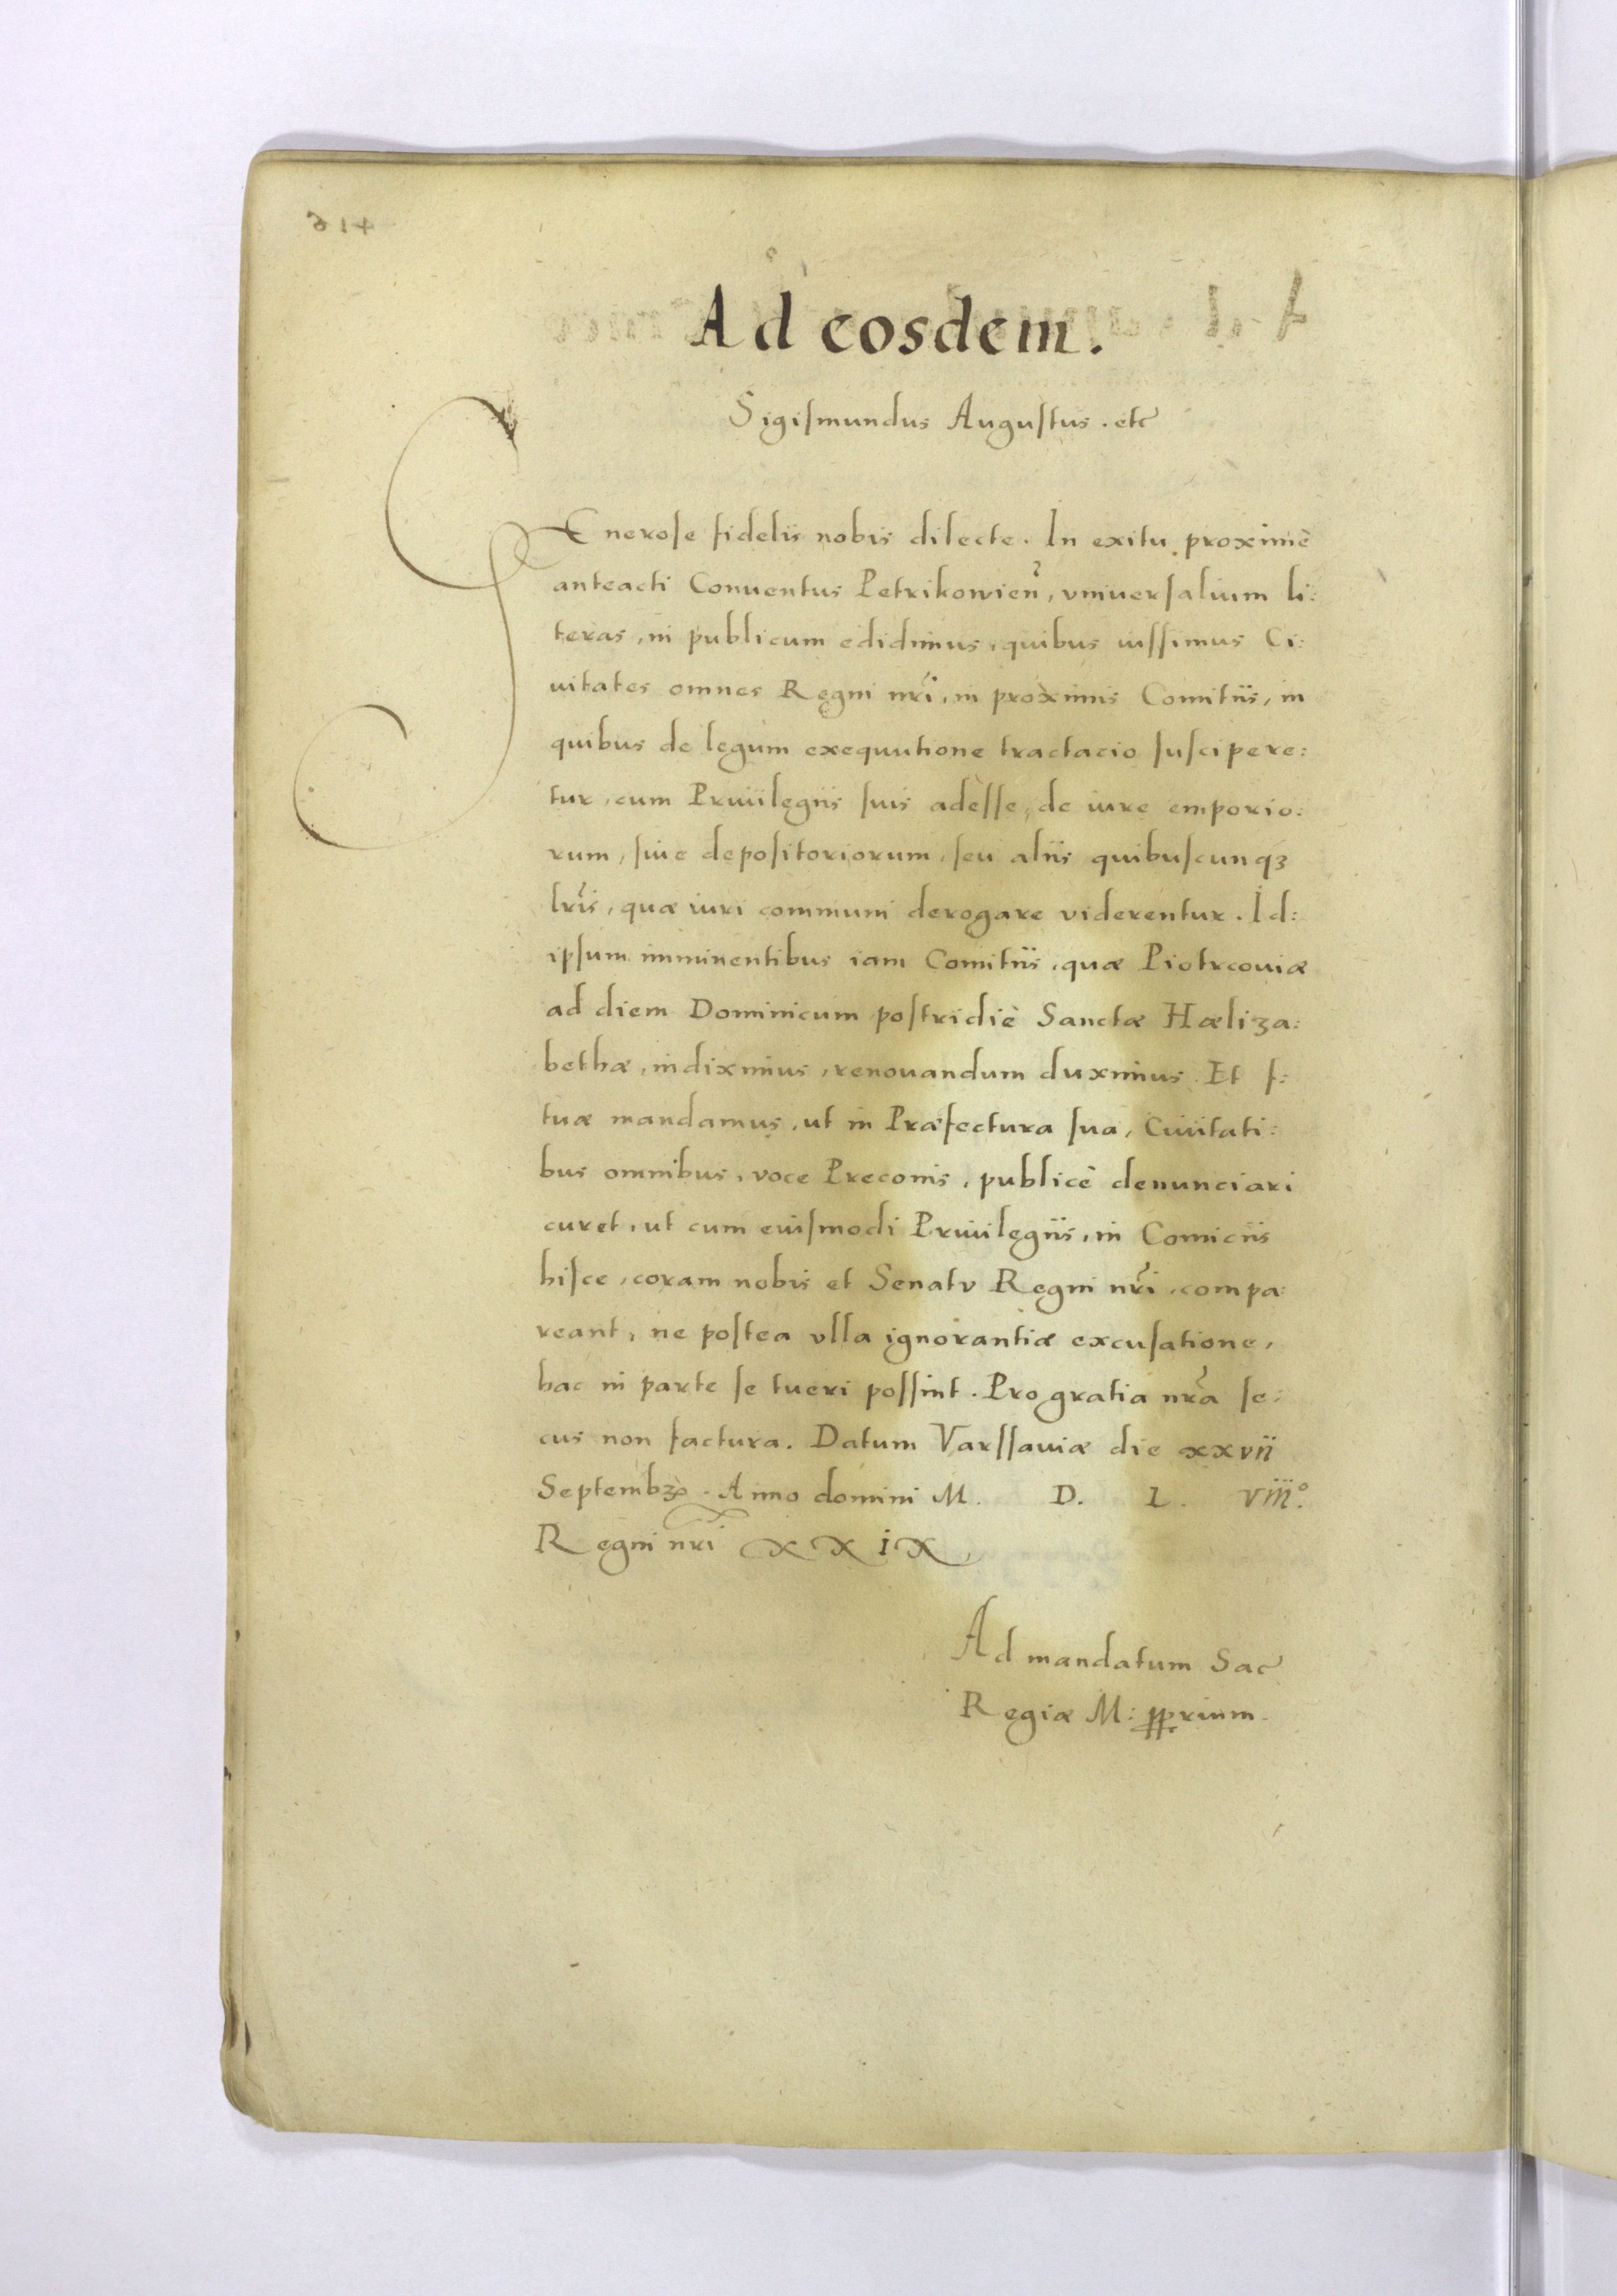 314
Ad eosdem.
Sigismundus Augustus . etc
GEnerose fidelis nobis dilecte. In exitu proximè
anteacti Conuentus Petrikowien, vniuersalium li:
teras, in publicum edidimus, quibus iussimus Ci:
uitates omnes Regni nri, in proximis Comitiis, in
quibus de legum exequutione tractacio suscipere:
tur, cum Priuilegiis suis adesse, de iure emporio:
rum, siue depositoriorum, seu aliis quibuscunqȝ
lris, quæ iuri communi derogare viderentur. Id:
ipsum imminentibus iam Comitiis, quæ Piotrcouiæ
ad diem Dominicum postridiè Sanctæ Hæliza:
bethæ, indiximus, renouandum duximus. Et f:
tuæ mandamus, ut in Præfectura sua, Ciuitati:
bus omnibus, voce Preconis, publicè denunciari
curet, ut cum eiusmodi Priuilegiis, in Comiciis
hisce, coram nobis et Senatv Regni nri, compa:
reant, ne postea vlla ignorantiæ excusatione,
hac in parte se tueri possint. Pro gratia nra se:
cus non factura. Datum Varssauiæ die xxvii
Septembȝ. Anno domini M. D. L. viii°.
Regni nri xxix
Ad mandatum Sac
Regiæ M: pprium.